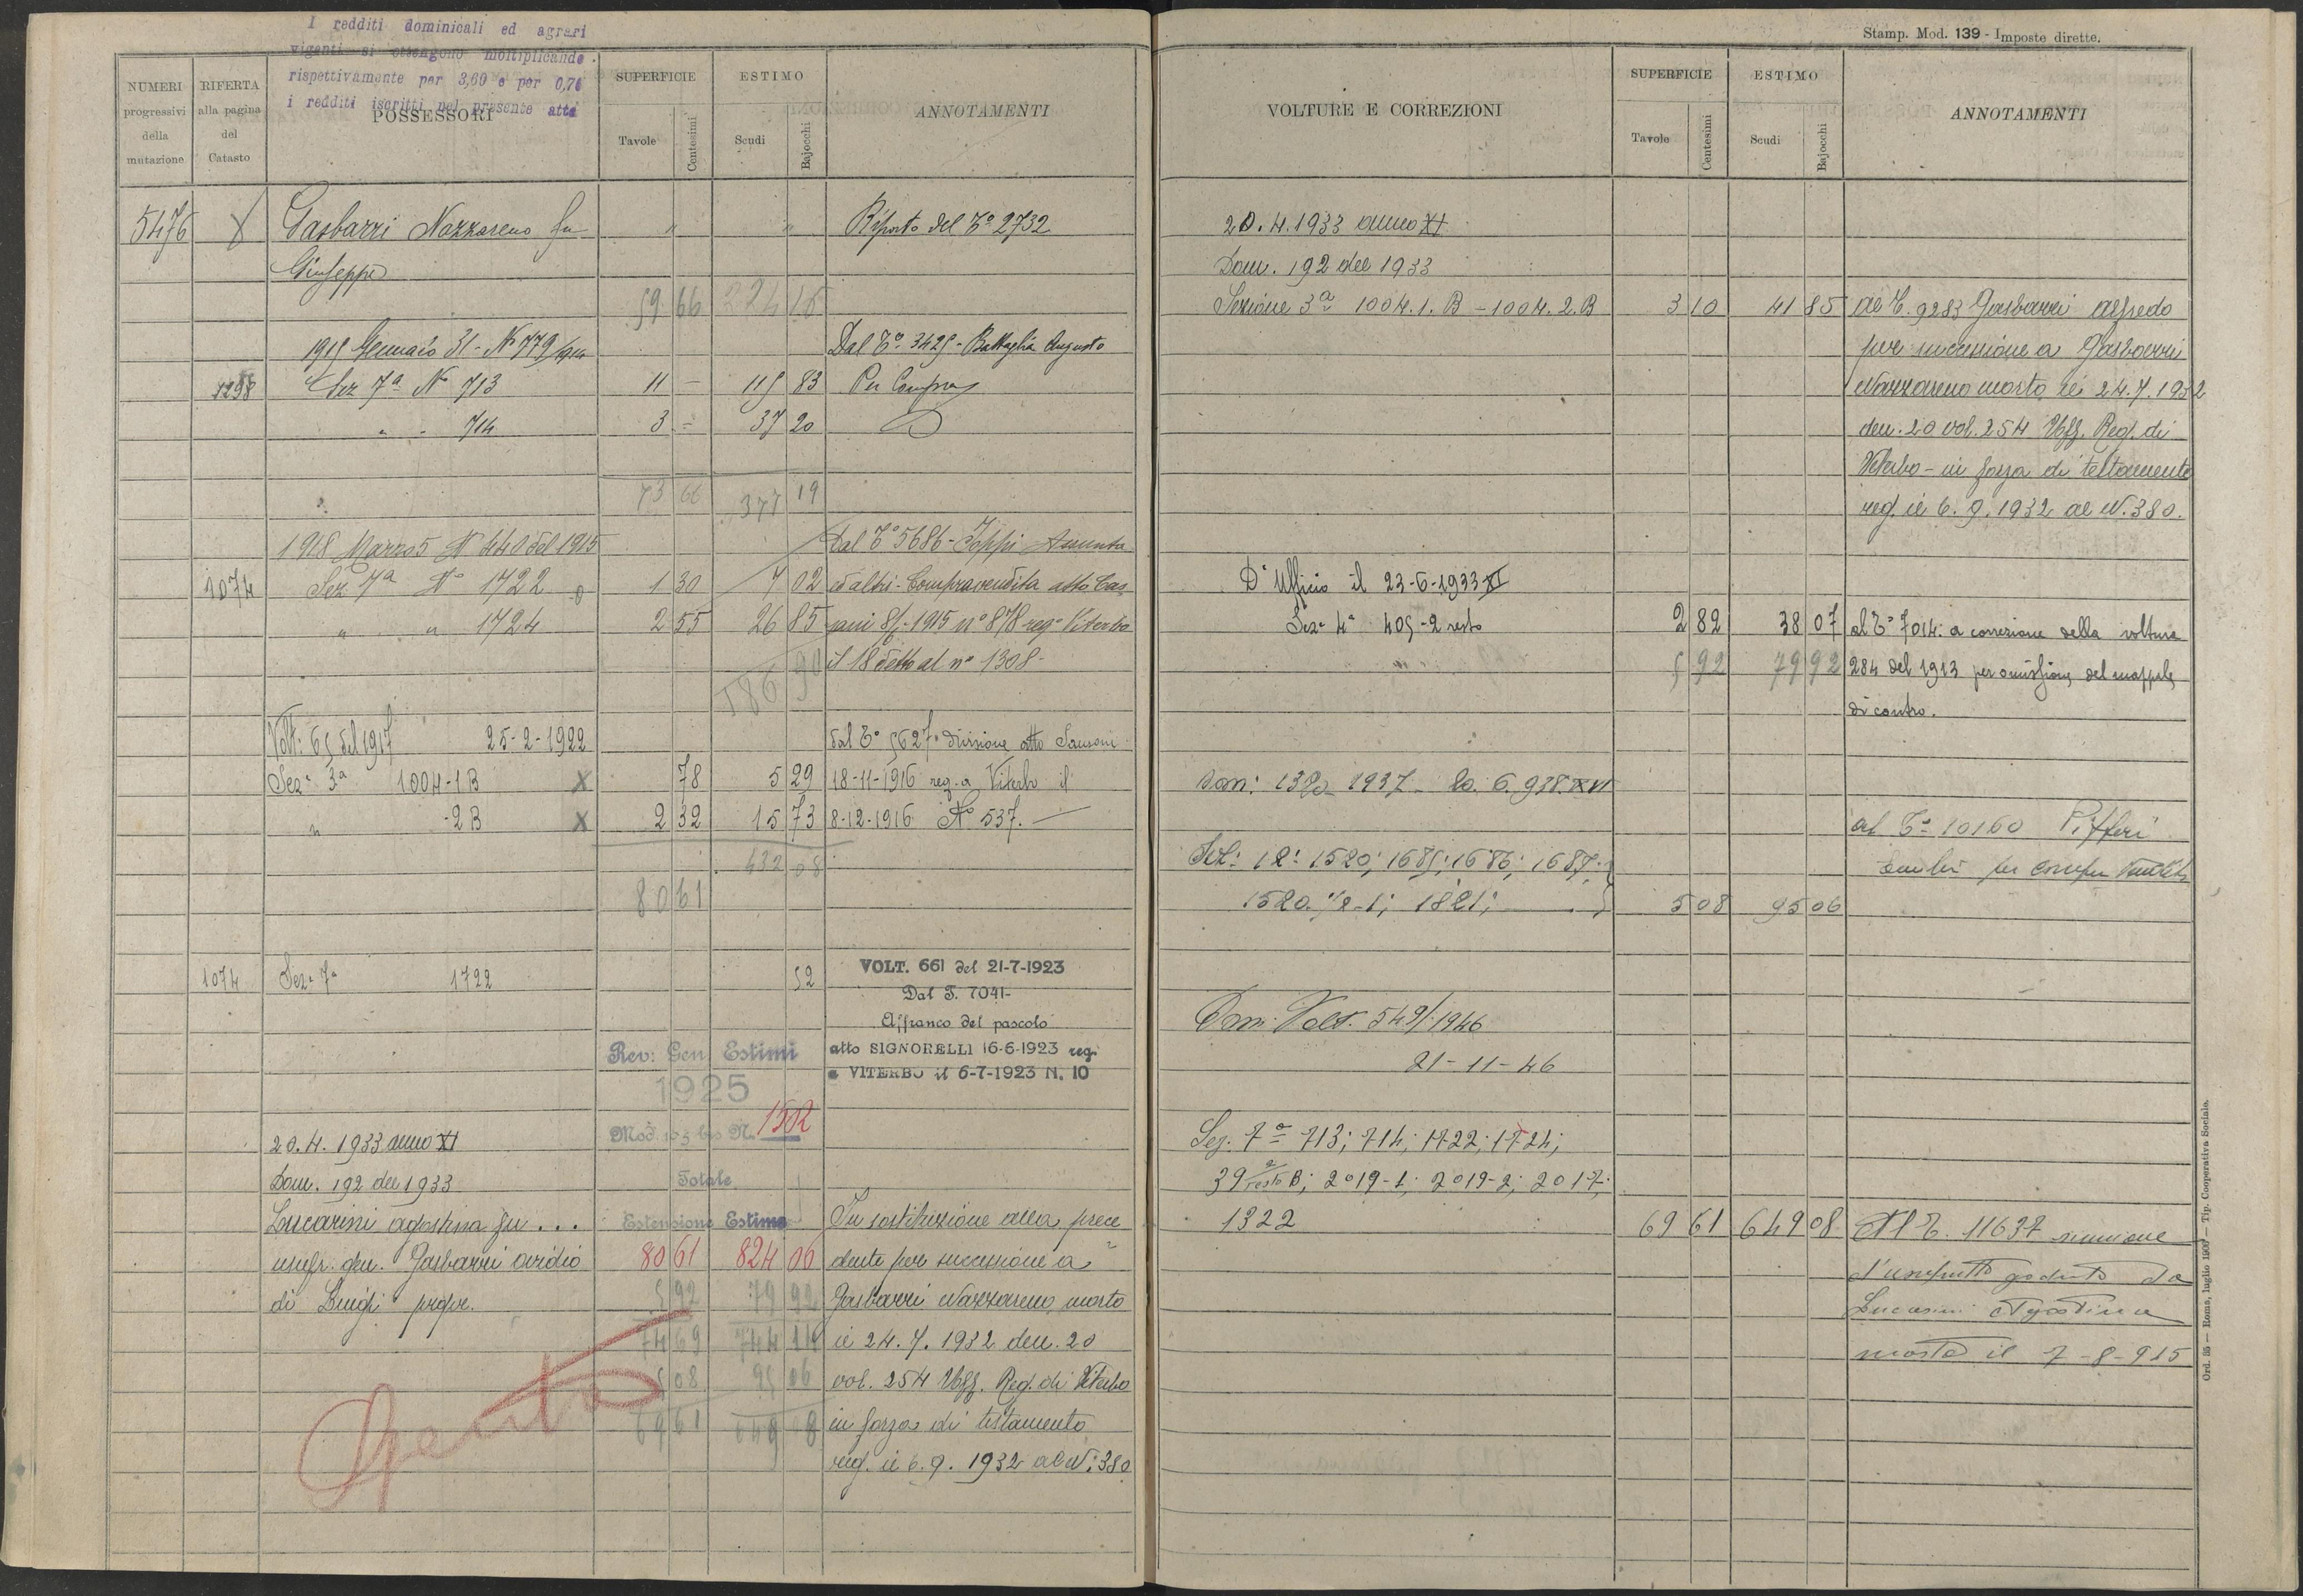 I redditi dominicali ed agrari
vigenti si ottengono moltiplicando
rispettivamente per 3,60 e per 0,70
i redditi iscritti nel presente atto
NUMERI progressivi della mutazione
RIFERTA alla pagina del Catasto
POSSESSORI
SUPERFICIE
Tavole Centesimi
ESTIMO
Scudi Bajocchi
ANNOTAMENTI
5476 Gasbarri Nazzareno fu " " Riporto del T° 2732
Giuseppe
59 66 224 16
1915 Gennaio 31 - N° 779/1914 Dal T° 3425 - Battaglia Augusto
1298 Sez 7ª N° 713 11 — 115 83 Per Compra
" - 714 3 = 37 20
73 66 377 19
1918 Marzo 5 N° 440 del 1915 Dal T° 5686 - Poppi Assunta
1074 Sez 7ª N° 1722 1 30 7 02 ed altri - Compravendita atto
" " 1724 2 55 26 85 1915 n° 878 reg° Viterbo
il 18 detto al n° 1308 -
Volt: 65 del 1917 25-2-1922 dal T° 5627 divisione atto Sansoni
Sez: 3ª 1004-1B X 78 5 29 18-11-1916 reg. a Viterbo il
" -2B X 2 32 15 73 8-12-1916 N° 537. —
432 08
80 61
1074 Sez: 7ª 1722 52 VOLT. 661 del 21-7-1923
Dal T. 7041-
Affranco del pascolo
Rev: Gen Estimi atto SIGNORELLI 16-6-1923 reg.
1925 a VITERBO il 6-7-1923 N. 10
Mod. N. 1502
20.4.1933 anno XI
Dom. 192 del 1933 Totale
Lucarini Agostina fu ... Estensione Estimo In sostituzione alla prece
usufr. gen. Gasbarri Ovidio 80 61 824 06 dente per successione a
di Luigi propr. 5 92 79 92 Gasbarri Nazzareno morto
74 69 744 14 il 24.7.1932 den. 20
5 08 95 06 vol. 254 Uff. Reg. di Viterbo
69 61 649 08 in forza di testamento
reg. il 6.9.1932 al N. 380
Spento
Stamp. Mod. 139 - Imposte dirette.
VOLTURE E CORREZIONI
SUPERFICIE
Tavole Centesimi
ESTIMO
Scudi Bajocchi
ANNOTAMENTI
20.4.1933 anno XI
Dom. 192 del 1933
Sezione 3ª 1004.1.B - 1004.2.B 3 10 41 85 al T. 9283 Gasbarri Alfredo
per successione a Gasbarri
Nazzareno morto il 24.7.1932
den. 20 vol. 254 Uff. Reg. di
Viterbo - in forza di testamento
reg. il 6.9.1932 al N. 380.
D'Ufficio il 23-6-1933 XI
Sez: 4ª 405-2 resto 2 82 38 07 al T° 7014: a correzione della voltura
5 92 79 92 284 del 1913 per omissione del mappale
di contro.
Dom: 1937 6.938 XVI
al T° 10160 Pifferi
1520; 1685; 1686; 1687; per
1520 1/2-1; 1821; 5 08 95 06
Dom. Volt. 549/1946
21-11-46
Sez. 7ª 713; 714; 1722; 1724;
39 resto B; 2019-1; 2019-2; 2017;
1322 69 61 649 08 Al T. 11637 riunione
d'usufrutto goduto da
Lucarini Agostina
morta il 7-8-915
Ord. 85 — Roma, luglio 1909 — Tip. Cooperativa Sociale.